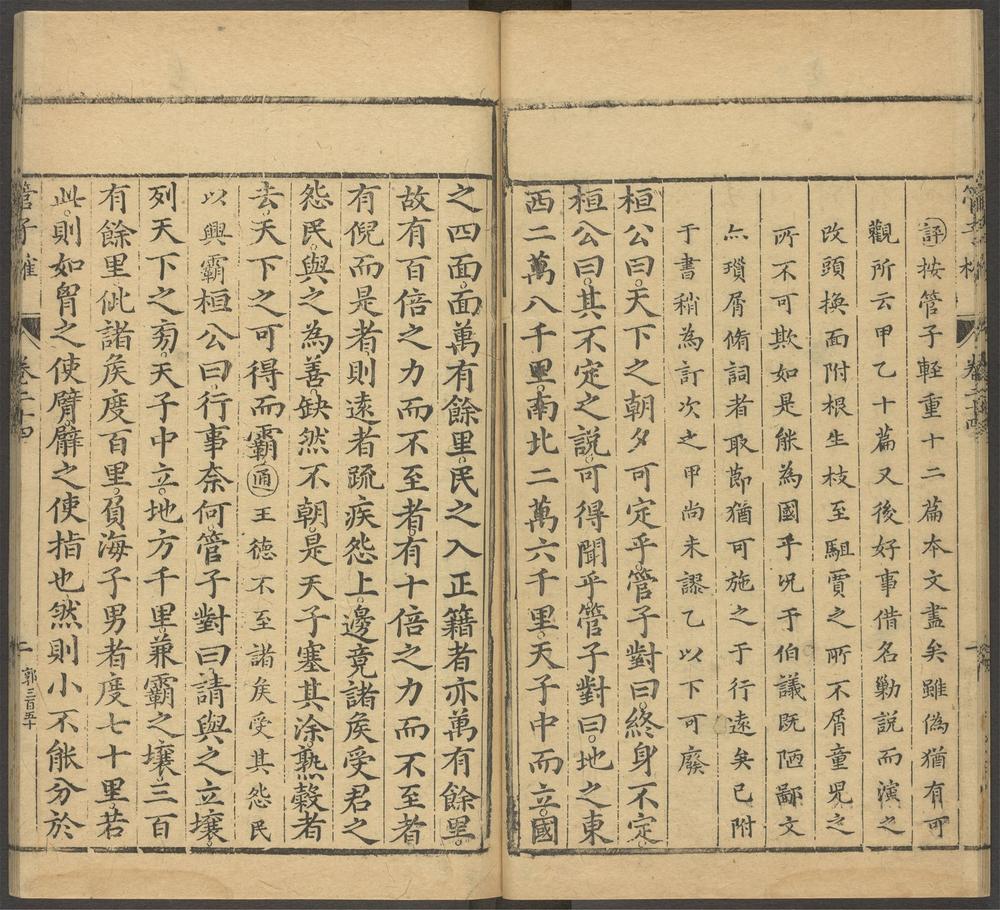 管子榷
卷二十四
一
評按管子輕重十二篇本文盡矣雖偽猶有可
觀所云甲乙十篇又後好事借名勦説而演之
改頭換面附根生枝至駔賈之所不屑童児之
所不可欺如是能為國乎况于伯議既陋鄙文
亦瑣屑脩詞者取節猶可施之于行逺矣已附
于書稍為訂次之甲尚未謬乙以下可廢
桓公曰天下之朝夕可定乎管子對曰終身不定
桓公曰其不定之説可得聞乎管子對曰地之東
西二萬八千里南北二萬六千里天子中而立國
之四面面萬有餘里民之入正籍者亦萬有餘里
故有百倍之力而不至者有十倍之力而不至者
有倪而是者則遠者疏疾怨上邊竟諸矦受君之
怨民與之為善缺然不朝是天子塞其涂熟穀者
去天下之可得而霸通王德不至諸矦受其怨民
以興霸桓公曰行事奈何管子對曰請與之立壤
列天下之菊天子中立地方千里兼霸之壤三百
有餘里佌諸矦度百里負海子男者度七十里若
此則如胷之使臂臂之使指也然則小不能分於
管子榷
卷二十四
二
郭三百五十